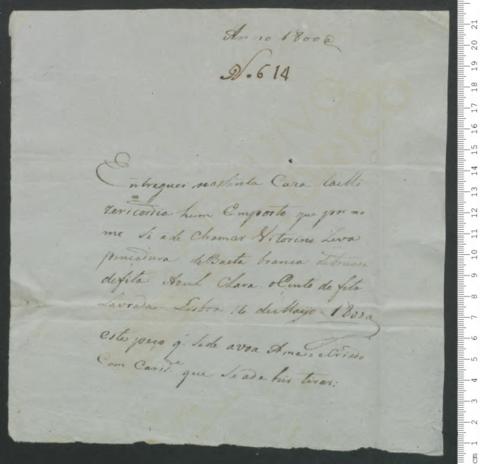 Anno 1800
N. 614
Entregues na Santa Caza da Mi
zericordia hum Emgeito que por no
me Se a de Chamar Vitorino Leva
pingadura de Baeta branca debruada
de fita Azul Clara o Cinto de fita
Lavrada Lisboa 16 de Mayo 1800
este peço q Se de a voa Ama e Criado
Com Carid.e que Se a de hir tirar.